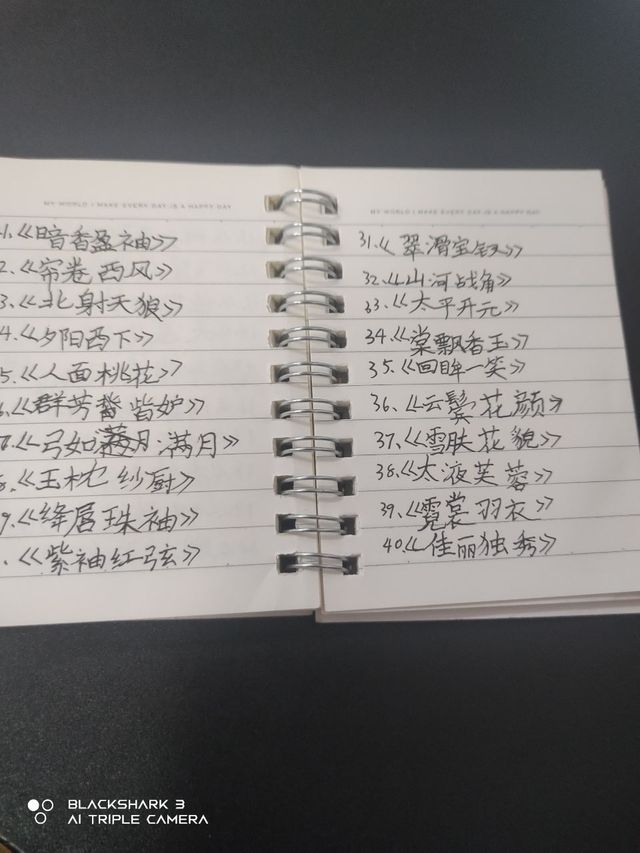 MY WORLD I MAKE EVERY DAY IS A HAPPY DAY
1.《暗香盈袖》
2.《帘卷西风》
3.《北射天狼》
4.《夕阳西下》
5.《人面桃花》
《群芳皆妒》
《弓如满月》
《玉枕纱厨》
9.《绛唇珠袖》
.《紫袖红弦》
MY WORLD I MAKE EVERY DAY IS A HAPPY DAY
31.《翠滑宝钗》
32.《山河战角》
33.《太平开元》
34.《棠飘香玉》
35.《回眸一笑》
36.《云鬓花颜》
37.《雪肤花貌》
38.《太液芙蓉》
39.《霓裳羽衣》
40.《佳丽独秀》
BLACKSHARK 3
AI TRIPLE CAMERA